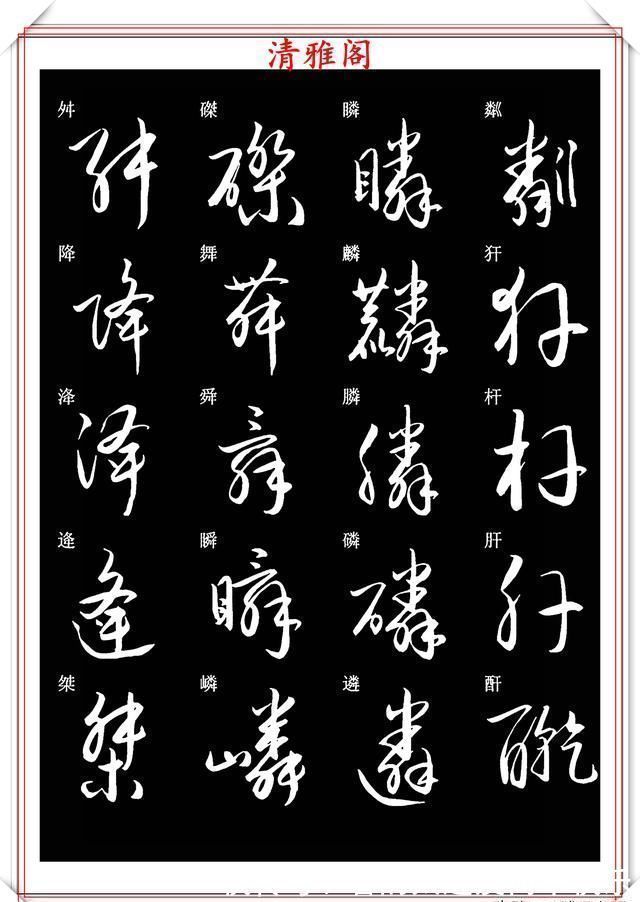 清雅阁
舛 磔 瞵 粼
降 舞 麟 犴
洚 舜 膦 杆
逄 瞬 磷 肝
桀 嶙 遴 酐